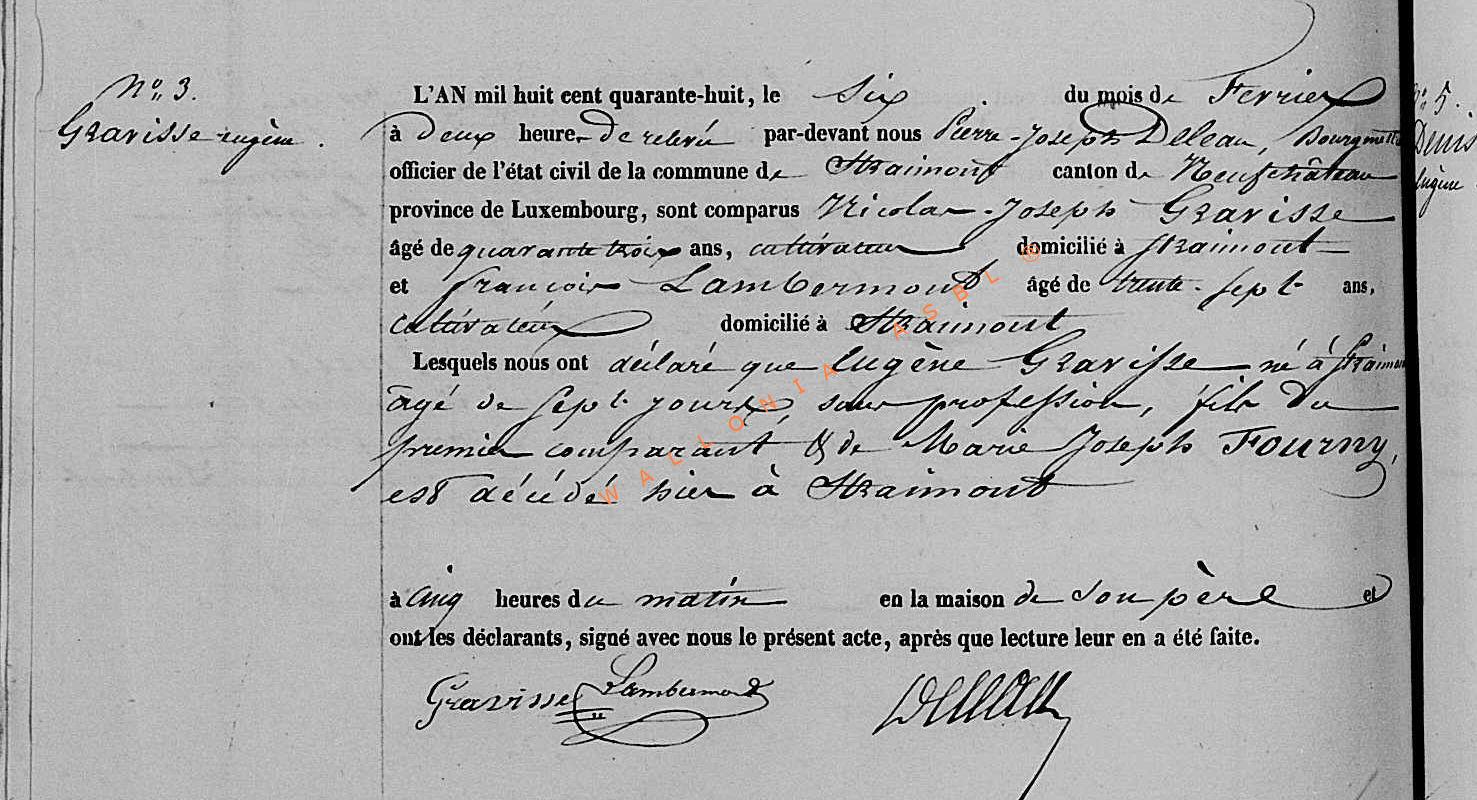 N° 3.
Gravisse eugène.
L'AN mil huit cent quarante-huit, le six du mois de Fevrier
à deux heures de relevée par-devant nous Pierre-Joseph Deleau, Bourgmettre
officier de l'état civil de la commune de Straimont canton de Neufchâteau
province de Luxembourg, sont comparus Nicolas-Joseph Gravisse
âgé de quarante trois ans, cultivateur domicilié à Straimont
et françois Lambermont âgé de trente-sept ans,
cultivateur domicilié à Straimont
Lesquels nous ont déclaré que Eugène Gravisse né à Straimont
âgé de sept jours, sans profession, fils du
premier comparant & de Marie Joseph Fourny,
est décédé hier à Straimont
à cinq heures du matin en la maison de son père et
ont les déclarants, signé avec nous le présent acte, après que lecture leur en a été faite.
Gravisse Lambermont Deleau
N° 5.
Denis
Eugène
WALLONIA ASBL ®